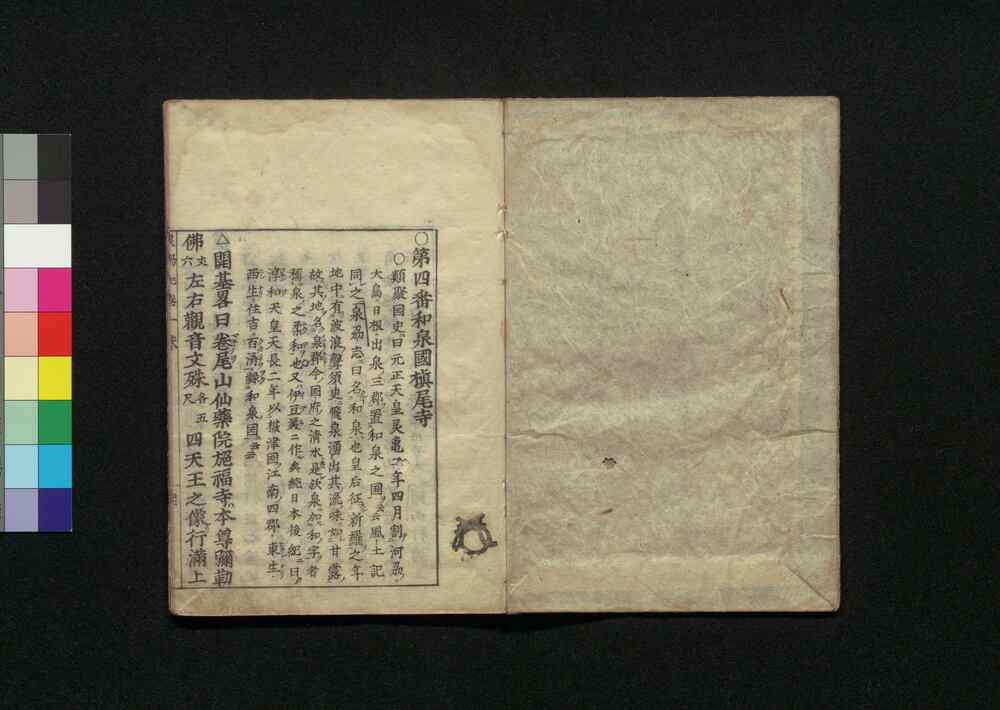 ○第四番和泉國槇尾寺
○類聚國史曰元正天皇灵龜二年四月割河刕
大鳥日根出泉三郡置和泉之國云云風土記
同之泉刕志曰名和泉也皇后征新羅之年
地中有波浪聲須臾飛泉湧出其流味如甘露
故其地名泉郡今國府之清水是訳泉加和字者
稱泉之柔和也又伊豆美ニ作矣続日本後紀曰
淳和天皇天長二年以摂津國江南四郡東生
西生住吉百済隷和泉國云云
△開基畧曰巻尾山仙藥院施福寺本尊彌勒
佛丈六左右觀音文殊各五尺四天王之像行滿上